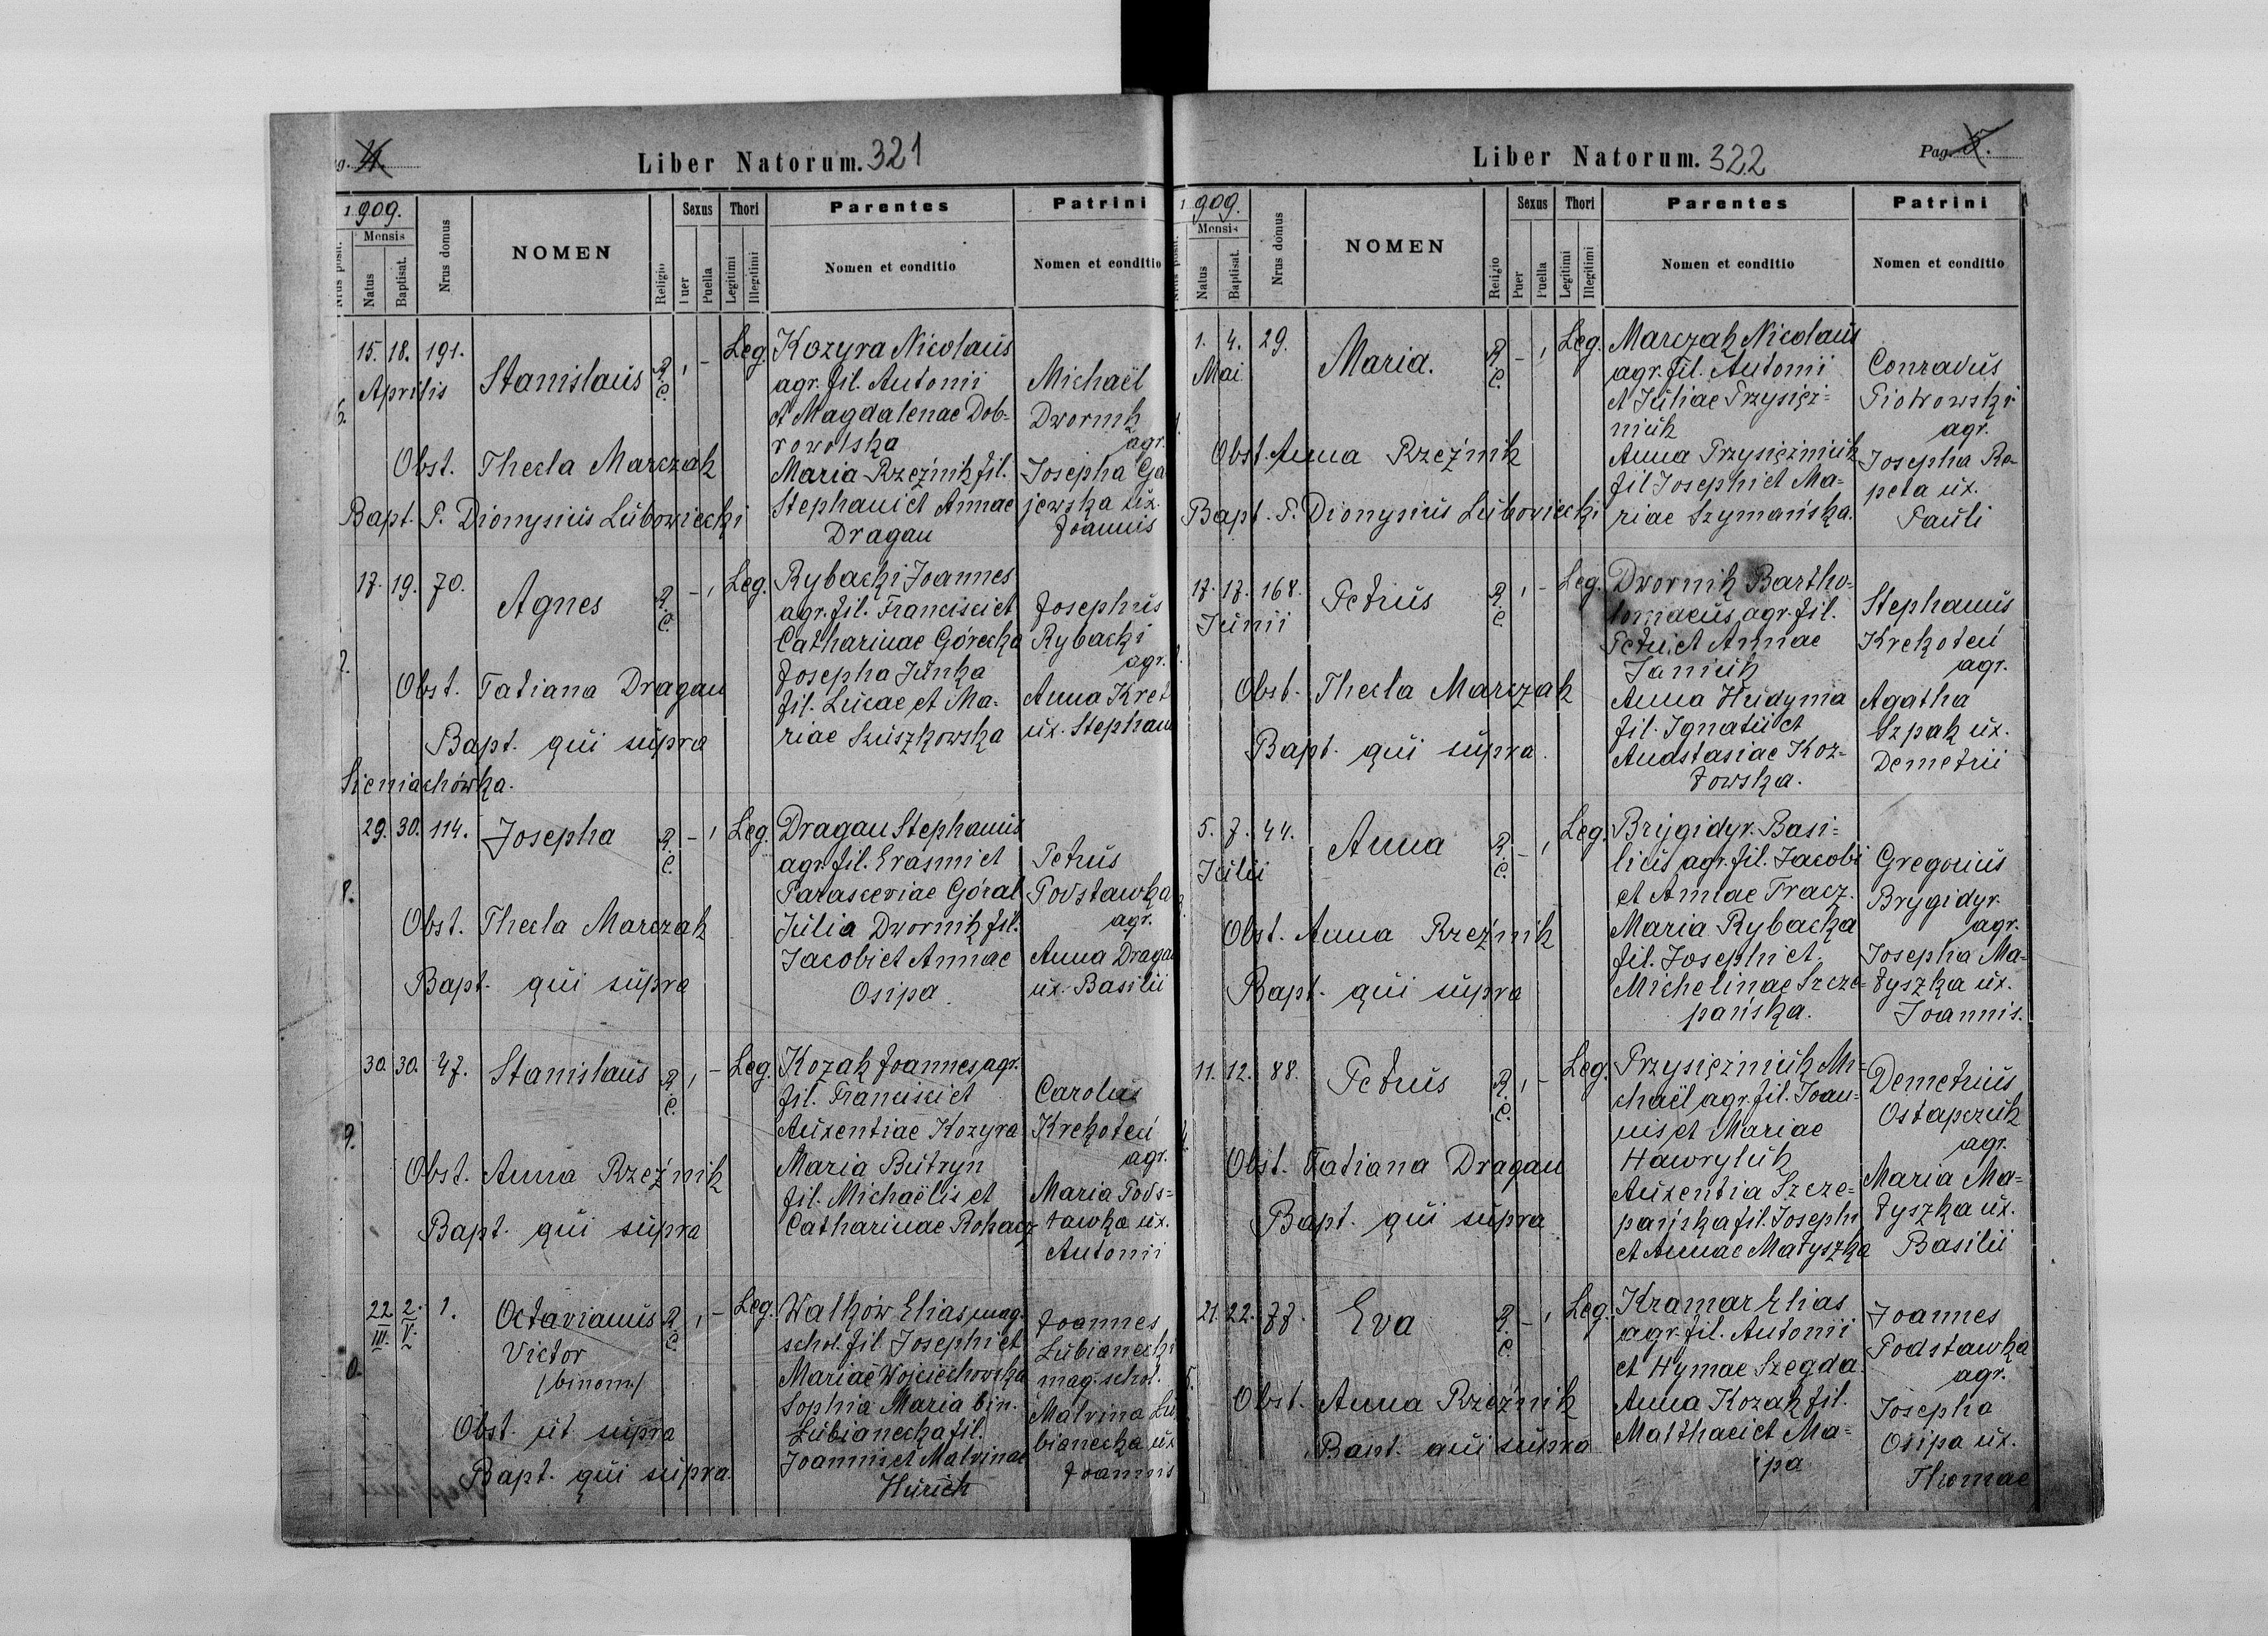 g. 4.
Liber Natorum. 321
1909.
Mensis
Nrus posit.
Natus
Baptisat.
Nrus domus
NOMEN
Religio
Sexus
Puer
Puella
Thori
Legitimi
Illegitimi
Parentes
Nomen et conditio
Patrini
Nomen et conditio
6.
15. 18. 191.
Aprilis
Stanislaus
R. C.
, -
Leg.
Kozyra Nicolaus
agr. fil. Antonii
et Magdalenae Dob-
rowolska
Maria Rzeźnik fil.
Stephani et Annae
Dragan
Michaël
Dwornik
agr.
Josepha Ga
jewska ux.
Joannis
Obst. Thecla Marczak
Bapt. P. Dionysius Lubowiecki
17. 19. 70.
Agnes
R. C.
- ,
Leg.
Rybacki Joannes
agr. fil. Francisci et
Catharinae Górecka
Josepha Junka
fil. Lucae et Ma-
riae Szuszkowska
Josephus
Rybacki
agr.
Anna Kret
ux. Stephani
Obst. Tatiana Dragan
Bapt. qui supra
Sieniachówka.
8.
29. 30. 114.
Josepha
R. C.
- ,
Leg.
Dragan Stephanus
agr. fil. Erasmi et
Parasceviae Góral
Julia Dwornik fil.
Jacobi et Annae
Osipa.
Petrus
Podstawka
agr.
Anna Dragan
ux. Basilii
Obst. Thecla Marczak
Bapt. qui supra
9.
30. 30. 47.
Stanislaus
R. C.
, -
Leg.
Kozak Joannes, agr.
fil. Francisci et
Auxentiae Kozyra
Maria Butryn
fil. Michaëlis et
Catharinae Rohacz
Carolus
Krekoteń
agr.
Maria Pods-
tawka ux.
Antonii
Obst. Anna Rzeźnik
Bapt. qui supra
0.
22. III. 2. V. 1.
Octavianus
Victor
/binom./
R. C.
, -
Leg.
Walków Elias, mag.
schol. fil. Josephi et
Mariae Wojciechowska
Sophia Maria bin.
Lubianecka fil.
Joannis et Malvinae
Hurich
Joannes
Lubianecki
mag. schol.
Malvina Lu
bianecka ux
Joannis
Obst. ut supra
Bapt. qui supra.
Liber Natorum. 322
Pag. 5.
1909.
Mensis
Nrus posit.
Natus
Baptisat.
Nrus domus
NOMEN
Religio
Sexus
Puer
Puella
Thori
Legitimi
Illegitimi
Parentes
Nomen et conditio
Patrini
Nomen et conditio
1. 4. 29.
Mai
Maria.
R. C.
- ,
Leg.
Marczak Nicolaus
agr. fil. Antonii
et Juliae Przysięż-
niuk
Anna Przysiężniuk
fil Josephi et Ma-
riae Szymańska.
Conradus
Piotrowski
agr.
Josepha Re-
peta ux.
Pauli
Obst. Anna Rzeźnik
Bapt. P. Dionysius Lubowiecki
17. 17. 168.
Junii
Petrus
R. C.
, -
Leg.
Dwornik Bartho-
lomaeus, agr. fil.
Petri et Annae
Janiuk
Anna Hudyma
fil. Ignatii et
Anastasiae Koz-
łowska.
Stephanus
Krekoteń
agr.
Agatha
Szpak ux.
Demetrii
Obst. Thecla Marczak
Bapt. qui supra.
5. 7. 44.
Julii
Anna
R. C.
- ,
Leg.
Brygidyr. Basi-
lius, agr. fil. Jacobi
et Annae Tracz.
Maria Rybacka
fil. Josephi et
Michelinae Szcze-
pańska.
Gregorius
Brygidyr.
agr.
Josepha Ma-
tyszka ux.
Joannis.
Obst. Anna Rzeźnik
Bapt. qui supra
11. 12. 88.
Petrus
R. C.
, -
Leg.
Przysiężniuk Mi-
chaël agr. fil. Joan-
nis et Mariae
Hawryluk
Auxentia Szcze-
pańska fil. Josephi
et Annae Matyszka
Demetrius
Ostapczuk
agr.
Maria Ma-
tyszka ux.
Basilii
Obst. Tatiana Dragan
Bapt. qui supra
21. 22. 77.
Eva
R. C.
- ,
Leg.
Kramar Elias
agr. fil. Antonii
et Hymae Szegda.
Anna Kozak fil.
Matthaei et Ma-
ipa
Joannes
Podstawka
agr.
Josepha
Osipa ux.
Thomae
Obst. Anna Rzeźnik
Bapt. qui supra